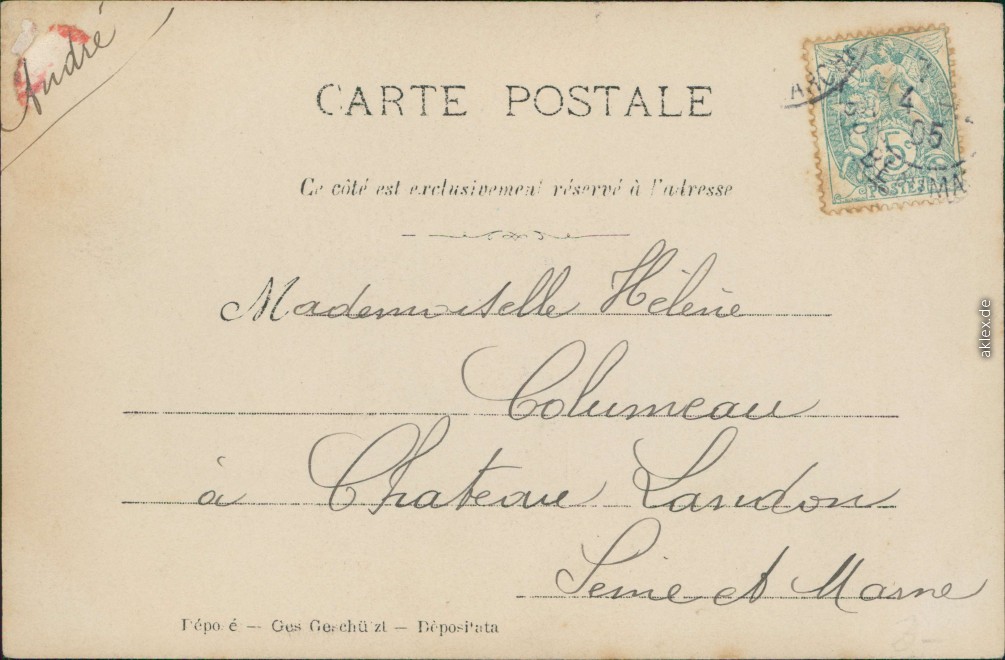 André
CARTE POSTALE
Ce côté est exclusivement réservé à l'adresse
5c
POSTES
4
05
Mademoiselle Hélène
Columeau
à Chateau Landon
Seine et Marne
Déposé — Ges Geschützt — Dépositata
aklex.de